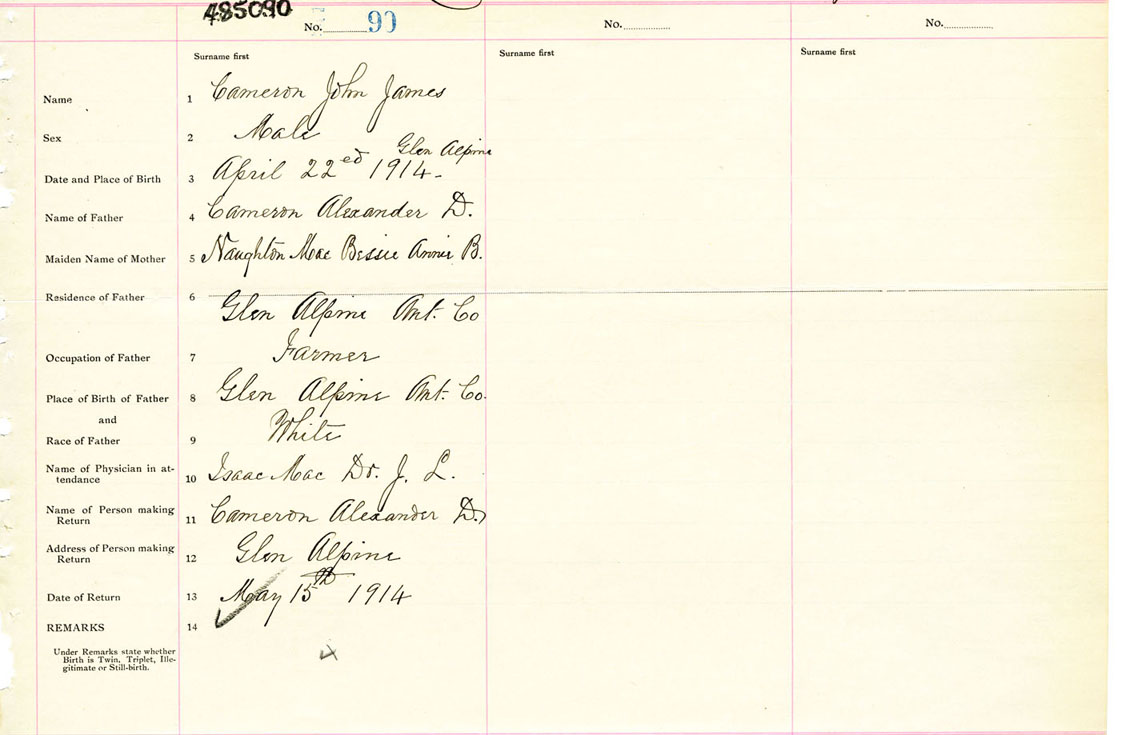 485090
No. 90
No.
No.
Surname first
Surname first
Surname first
Name 1 Cameron John James
Sex 2 Male
Glen Alpine
Date and Place of Birth 3 April 22ed 1914-
Name of Father 4 Cameron Alexander D.
Maiden Name of Mother 5 Naughton Mac Bessie Annie B.
Residence of Father 6
Glen Alpine Ant. Co
Occupation of Father 7 Farmer
Place of Birth of Father 8 Glen Alpine Ant. Co.
and
Race of Father 9 White
Name of Physician in at-
tendance 10 Isaac Mac Dr. J. L.
Name of Person making
Return 11 Cameron Alexander D.
Address of Person making
Return 12 Glen Alpine
Date of Return 13 May 15th 1914
REMARKS 14
Under Remarks state whether
Birth is Twin, Triplet, Ille-
gitimate or Still-birth.